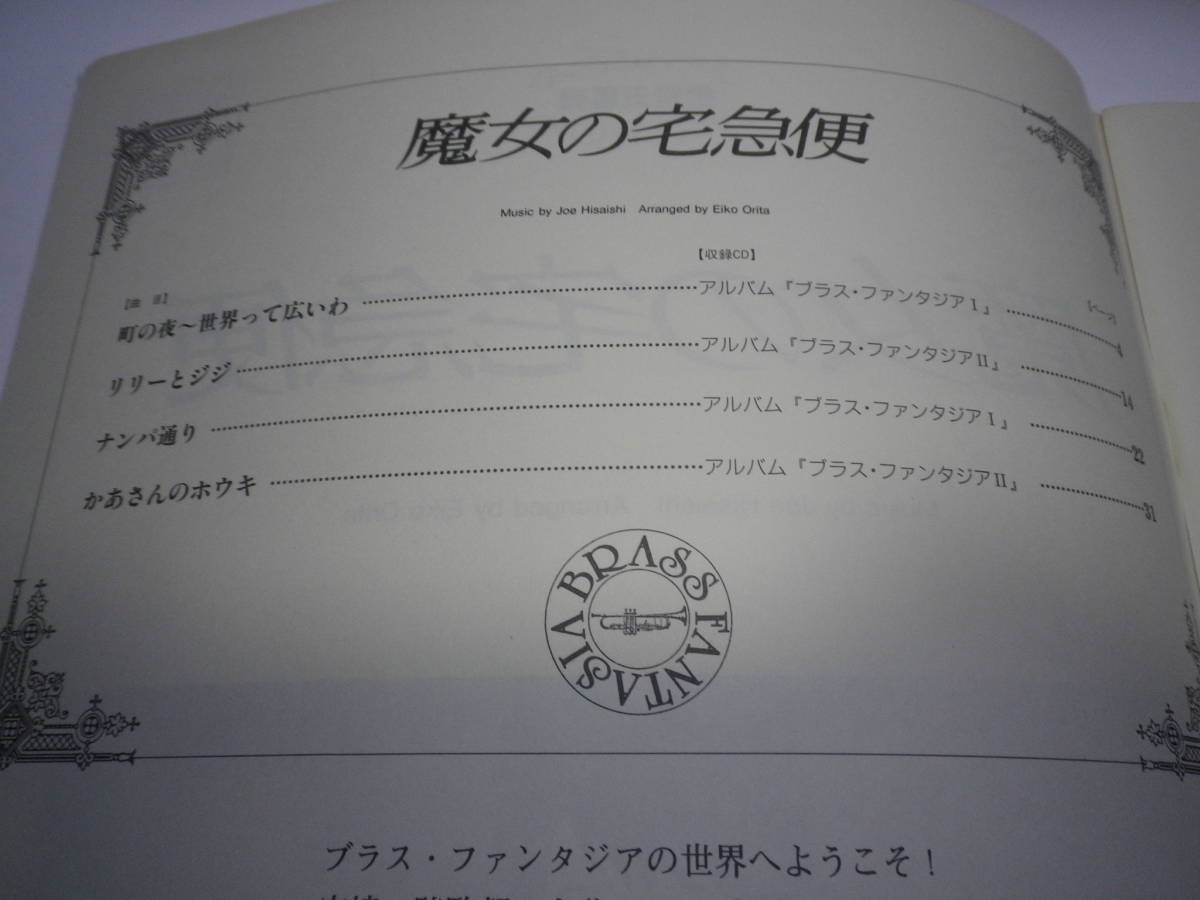 魔女の宅急便
Music by Joe Hisaishi Arranged by Eiko Orita
【曲目】 【収録CD】 【ページ】
町の夜~世界って広いわ……アルバム『ブラス・ファンタジアⅠ』……4
リリーとジジ……アルバム『ブラス・ファンタジアⅡ』……14
ナンパ通り……アルバム『ブラス・ファンタジアⅠ』……22
かあさんのホウキ……アルバム『ブラス・ファンタジアⅡ』……31
BRASS FANTASIA
ブラス・ファンタジアの世界へようこそ!